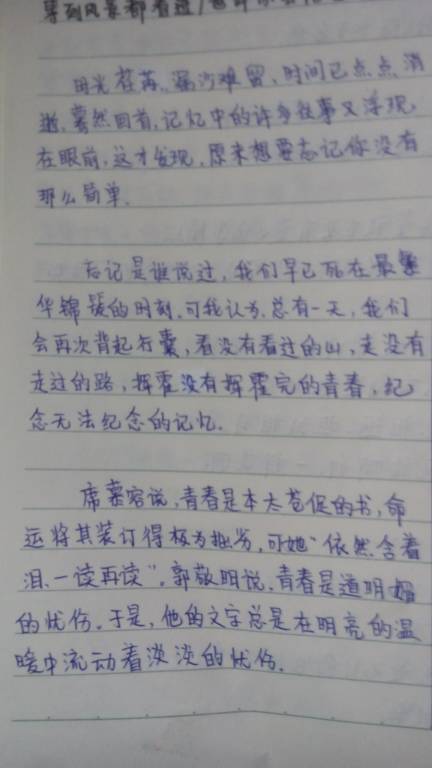 等到风景都看透
时光荏苒、漏沙难留，时间已点点消
逝，蓦然回首，记忆中的许多往事又浮现
在眼前，这才发现，原来想要忘记你没有
那么简单．
忘记是谁说过，我们早已死在最繁
华锦簇的时刻，可我认为，总有一天，我们
会再次背起行囊，看没有看过的山，走没有
走过的路，挥霍没有挥霍完的青春，纪
念无法纪念的记忆．
席慕容说，青春是本太苍促的书，命
运将其装订得极为拙劣，可她“依然含着
泪，一读再读”，郭敬明说，青春是道明媚
的忧伤．于是，他的文字总是在明亮的温
暖中流动着淡淡的忧伤．